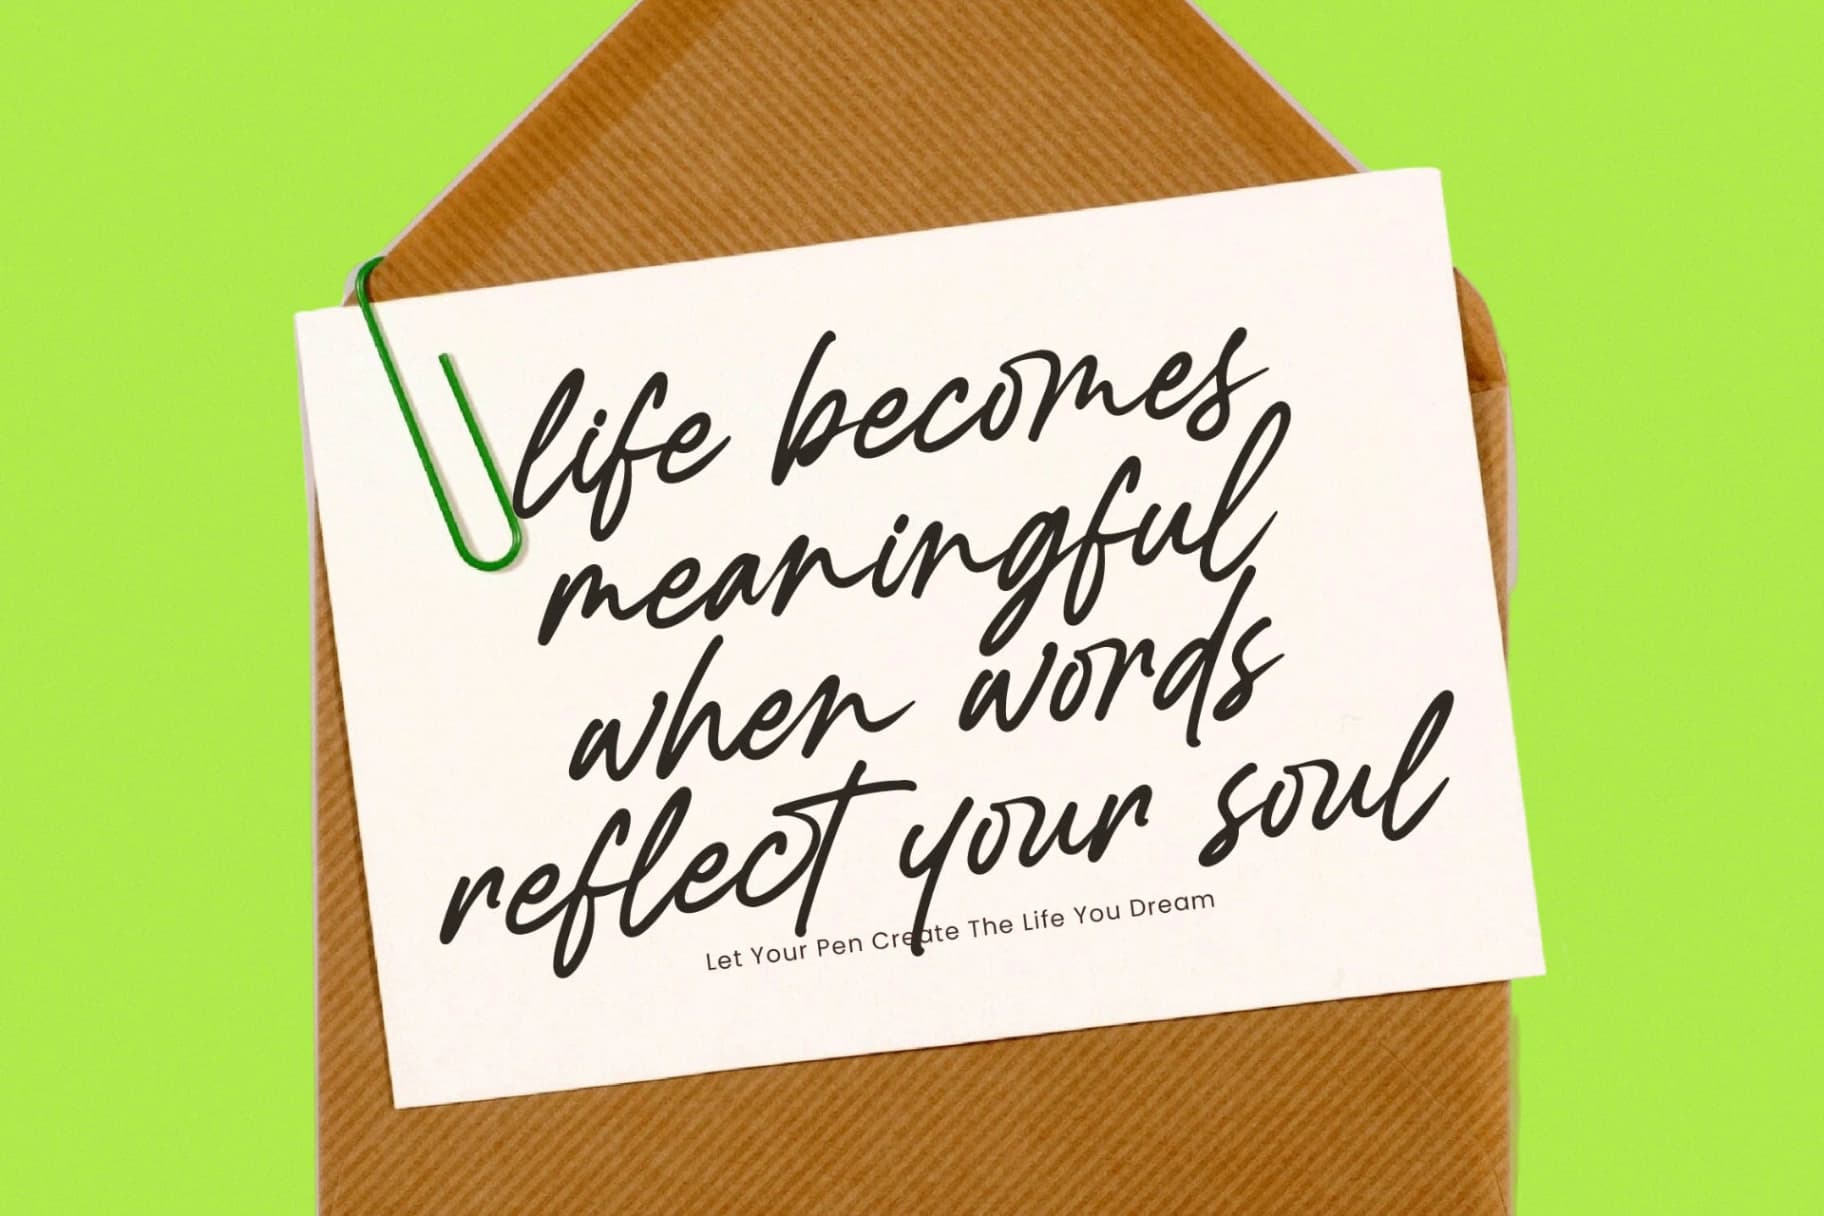 life becomes
meaningful
when words
reflect your soul
Let Your Pen Create The Life You Dream